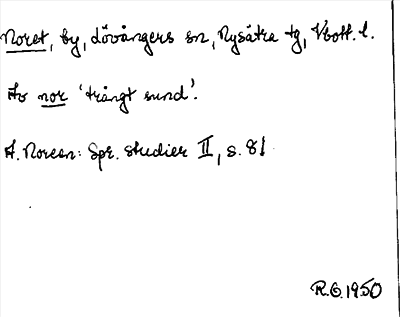 Noret, by, Lövångers sn, Nysätra tg, Vbott. l.
Av nor 'trångt sund'.
A. Noreen: Spr. studier II, s. 81
R.G. 1950